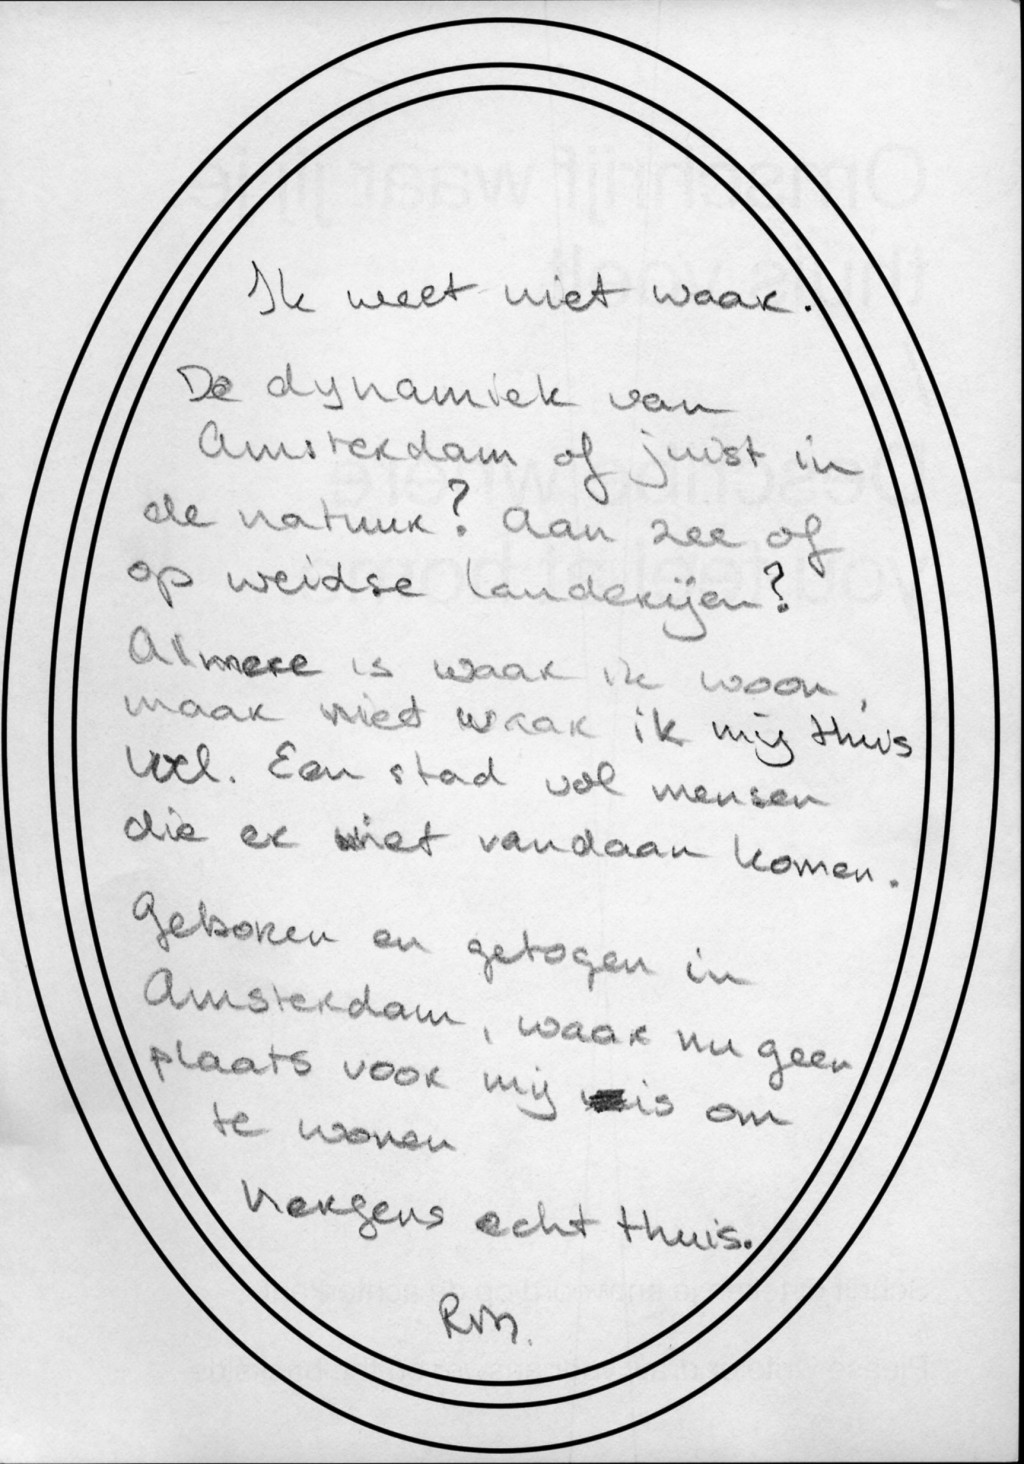 Ik weet niet waar.
De dynamiek van
Amsterdam of juist in
de natuur? Aan zee of
op weidse landerijen?
Almere is waar ik woon,
maar niet waar ik mij thuis
voel. Een stad vol mensen
die er niet vandaan komen.
Geboren en getogen in
Amsterdam, waar nu geen
plaats voor mij is om
te wonen
Nergens echt thuis.